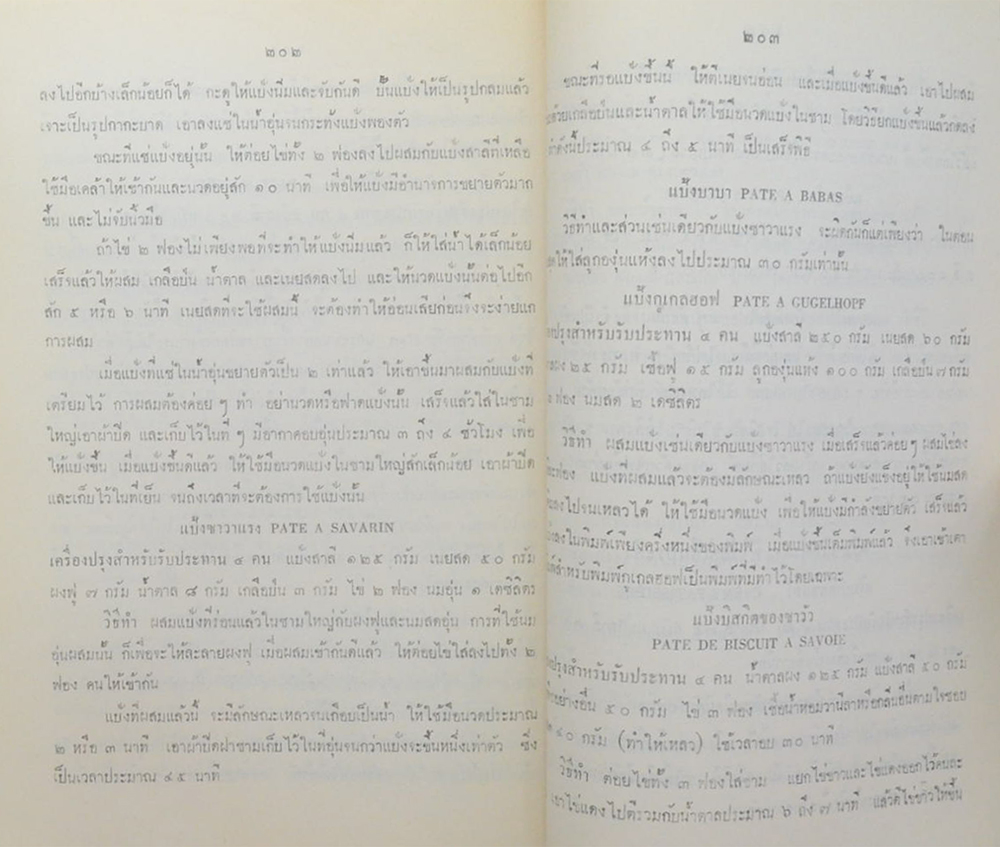 ๒๐๒
ลงไปอีกบ้างเล็กน้อยก็ได้ กะดูให้แป้งนิ่มและจับกันดี ปั้นแป้งให้เป็นรูปกลมแล้ว
เจาะเป็นรูปกากะบาด เอาลงแช่ในน้ำอุ่นจนกระทั่งแป้งพองตัว
ขณะที่แช่แป้งอยู่นั้น ให้ต่อยไข่ทั้ง ๒ ฟองลงไปผสมกับแป้งสาลีที่เหลือ
ใช้มือเคล้าให้เข้ากันและนวดอยู่สัก ๑๐ นาที เพื่อให้แป้งมีอำนาจการขยายตัวมาก
ขึ้น และไม่จับนิ้วมือ
ถ้าไข่ ๒ ฟองไม่เพียงพอที่จะทำให้แป้งนิ่มแล้ว ก็ให้ใส่น้ำได้เล็กน้อย
เสร็จแล้วให้ผสม เกลือป่น น้ำตาล และเนยสดลงไป และให้นวดแป้งนั้นต่อไปอีก
สัก ๕ หรือ ๖ นาที เนยสดที่จะใช้ผสมนี้ จะต้องทำให้อ่อนเสียก่อนจึงจะง่ายแก่
การผสม
เมื่อแป้งที่แช่ในน้ำอุ่นขยายตัวเป็น ๒ เท่าแล้ว ให้เอาขึ้นมาผสมกับแป้งที่
เตรียมไว้ การผสมต้องค่อย ๆ ทำ อย่านวดหรือฟาดแป้งนั้น เสร็จแล้วใส่ในชาม
ใหญ่เอาผ้าปิด และเก็บไว้ในที่ ๆ มีอากาศอบอุ่นประมาณ ๓ ถึง ๔ ชั่วโมง เพื่อ
ให้แป้งขึ้น เมื่อแป้งขึ้นดีแล้ว ให้ใช้มือนวดแป้งในชามใหญ่สักเล็กน้อย เอาผ้าปิด
และเก็บไว้ในที่เย็น จนถึงเวลาที่จะต้องการใช้แป้งนั้น
แป้งซาวาแรง PATE A SAVARIN
เครื่องปรุงสำหรับรับประทาน ๔ คน แป้งสาลี ๑๒๕ กรัม เนยสด ๕๐ กรัม
ผงฟู ๗ กรัม น้ำตาล ๘ กรัม เกลือป่น ๓ กรัม ไข่ ๒ ฟอง นมอุ่น ๑ เดซิลิตร
วิธีทำ ผสมแป้งที่ร่อนแล้วในชามใหญ่กับผงฟูและนมสดอุ่น การที่ใช้นม
อุ่นผสมนั้น ก็เพื่อจะให้ละลายผงฟู เมื่อผสมเข้ากันดีแล้ว ให้ต่อยไข่ใส่ลงไปทั้ง ๒
ฟอง คนให้เข้ากัน
แป้งที่ผสมแล้วนี้ จะมีลักษณะเหลวจนเกือบเป็นน้ำ ให้ใช้มือนวดประมาณ
๒ หรือ ๓ นาที เอาผ้าปิดฝาชามเก็บไว้ในที่อุ่นจนกว่าแป้งจะขึ้นหนึ่งเท่าตัว ซึ่ง
เป็นเวลาประมาณ ๔๕ นาที
๒๐๓
ขณะที่รอแป้งขึ้นนี้ ให้ตีเนยจนอ่อน และเมื่อแป้งขึ้นดีแล้ว เอาไปผสม
ด้วยเกลือป่นและน้ำตาลให้ใช้มือนวดแป้งในชาม โดยวิธียกแป้งขึ้นแล้วกดลง
ทำดังนี้ประมาณ ๔ ถึง ๕ นาที เป็นเสร็จพิธี
แป้งบาบา PATE A BABAS
วิธีทำและส่วนเช่นเดียวกับแป้งซาวาแรง จะผิดกันก็แต่เพียงว่า ในตอน
ให้ใส่ลูกองุ่นแห้งลงไปประมาณ ๓๐ กรัมเท่านั้น
แป้งกูเกลฮอฟ PATE A GUGELHOPF
ปรุงสำหรับรับประทาน ๔ คน แป้งสาลี ๒๕๐ กรัม เนยสด ๖๐ กรัม
๒๕ กรัม เชื้อฟู ๑๕ กรัม ลูกองุ่นแห้ง ๑๐๐ กรัม เกลือป่น ๗ กรัม
ฟอง นมสด ๒ เดซิลิตร
วิธีทำ ผสมแป้งเช่นเดียวกับแป้งซาวาแรง เมื่อเสร็จแล้วค่อยๆ ผสมไข่ลง
ละฟอง แป้งที่ผสมแล้วจะต้องมีลักษณะเหลว ถ้าแป้งยังแข็งอยู่ให้ใช้นมสด
ลงไปจนเหลวได้ ให้ใช้มือนวดแป้ง เพื่อให้แป้งมีกำลังขยายตัว เสร็จแล้ว
ลงในพิมพ์เพียงครึ่งหนึ่งของพิมพ์ เมื่อแป้งขึ้นเต็มพิมพ์แล้ว จึงเอาเข้าเตา
สำหรับพิมพ์กูเกลฮอฟเป็นพิมพ์ที่มีทำไว้โดยเฉพาะ
แป้งบิสกิตของซาวัว
PATE DE BISCUIT A SAVOIE
ปรุงสำหรับรับประทาน ๔ คน น้ำตาลผง ๑๒๕ กรัม แป้งสาลี ๕๐ กรัม
อย่างอื่น ๕๐ กรัม ไข่ ๓ ฟอง เชื้อน้ำหอมวานิลาหรือกลิ่นอื่นตามใจชอบ
๔๐ กรัม (ทำให้เหลว) ใช้เวลาอบ ๓๐ นาที
วิธีทำ ต่อยไข่ทั้ง ๓ ฟองใส่ชาม แยกไข่ขาวและไข่แดงออกไว้คนละ
เอาไข่แดงไปตีรวมกับน้ำตาลประมาณ ๖ ถึง ๗ นาที แล้วตีไข่ขาวให้ขึ้น